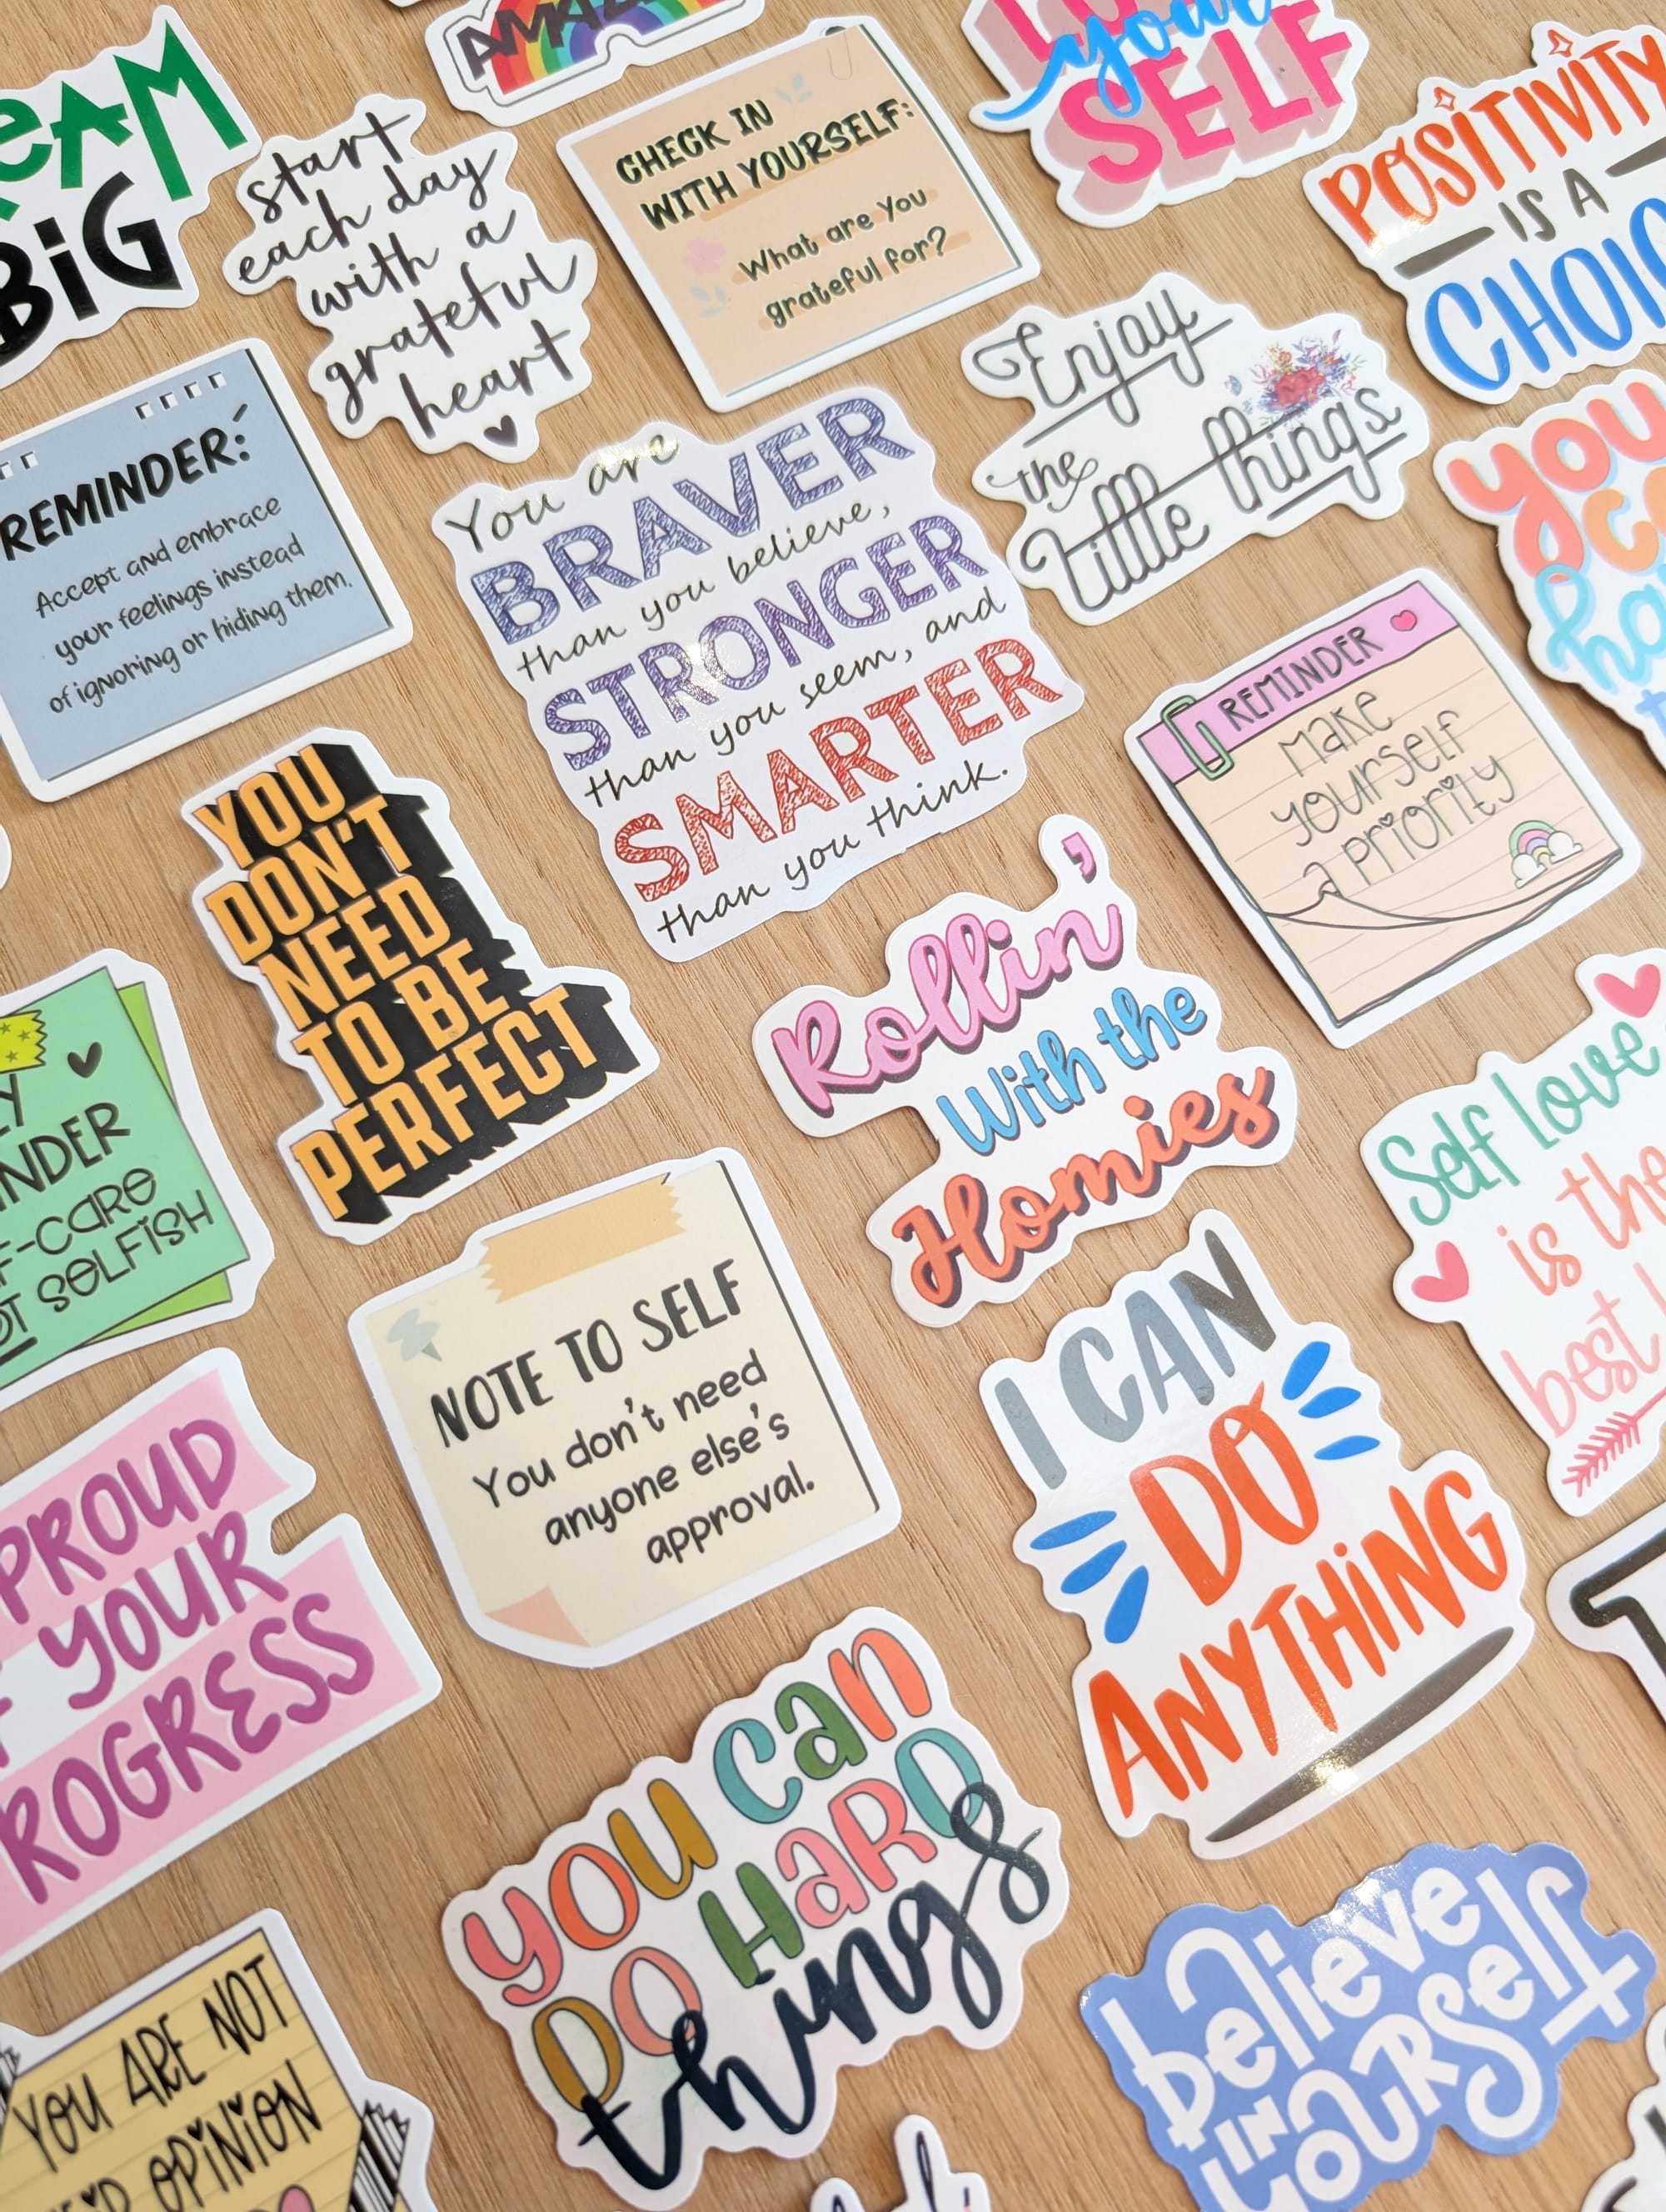 AMAZ
your
SELF
BIG
start
each day
with a
grateful
heart
CHECK IN
WITH YOURSELF:
What are You
grateful for?
POSITIVITY
IS A
REMINDER:
Accept and embrace
your feelings instead
of ignoring or hiding them.
You are
BRAVER
than you believe,
STRONGER
than you seem, and
SMARTER
than you think.
Enjoy
the
Little things
you
REMINDER
Make
yourself
a priority
YOU
DON'T
NEED
TO BE
PERFECT
Rollin'
With the
Homies
SELFISH
Self love
is the
best
NOTE TO SELF
You don't need
anyone else's
approval.
I CAN
DO
ANYTHING
PROUD
YOUR
You Can
DO HARD
things
believe
IN
YOURSelf
YOU ARE NOT
OPINION